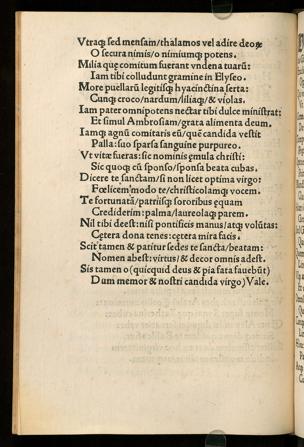 Vtraq; sed mensam/thalamos vel adire deoꝝ
O secura nimis/o nimiumq; potens.
Milia quę comitum fuerant vndena tuarũ:
Iam tibi colludunt gramine in Elyseo.
More puellarũ legitisq; hyacinctina serta:
Cunq; croco/nardum/liliaq;/& violas.
Iam pater omnipotens nectar tibi dulce ministrat:
Et simul Ambrosiam/grata alimenta deum.
Iamq; agnũ comitaris eũ/quẽ candida vestit
Palla: suo sparsa sanguine purpureo.
Vt vitæ fueras: sic nominis ęmula christi:
Sic quoq; cũ sponso/sponsa beata cubas.
Dicere te sanctam/si non licet optima virgo:
Fœlicem'modo te/christicolamq; vocem.
Te fortunatã/patriisq; sororibus equam
Crediderim: palma/laureolaq; parem.
Nil tibi deest: nisi pontificis manus/atq; volũtas:
Cętera dona tenes: cętera mira facis.
Scit tamen & patitur sedes te sancta/beatam:
Nomen abest: virtus/& decor omnis adest.
Sis tamen o (quicquid deus & pia fata fauebũt)
Dum memor & nostri candida virgo) Vale.